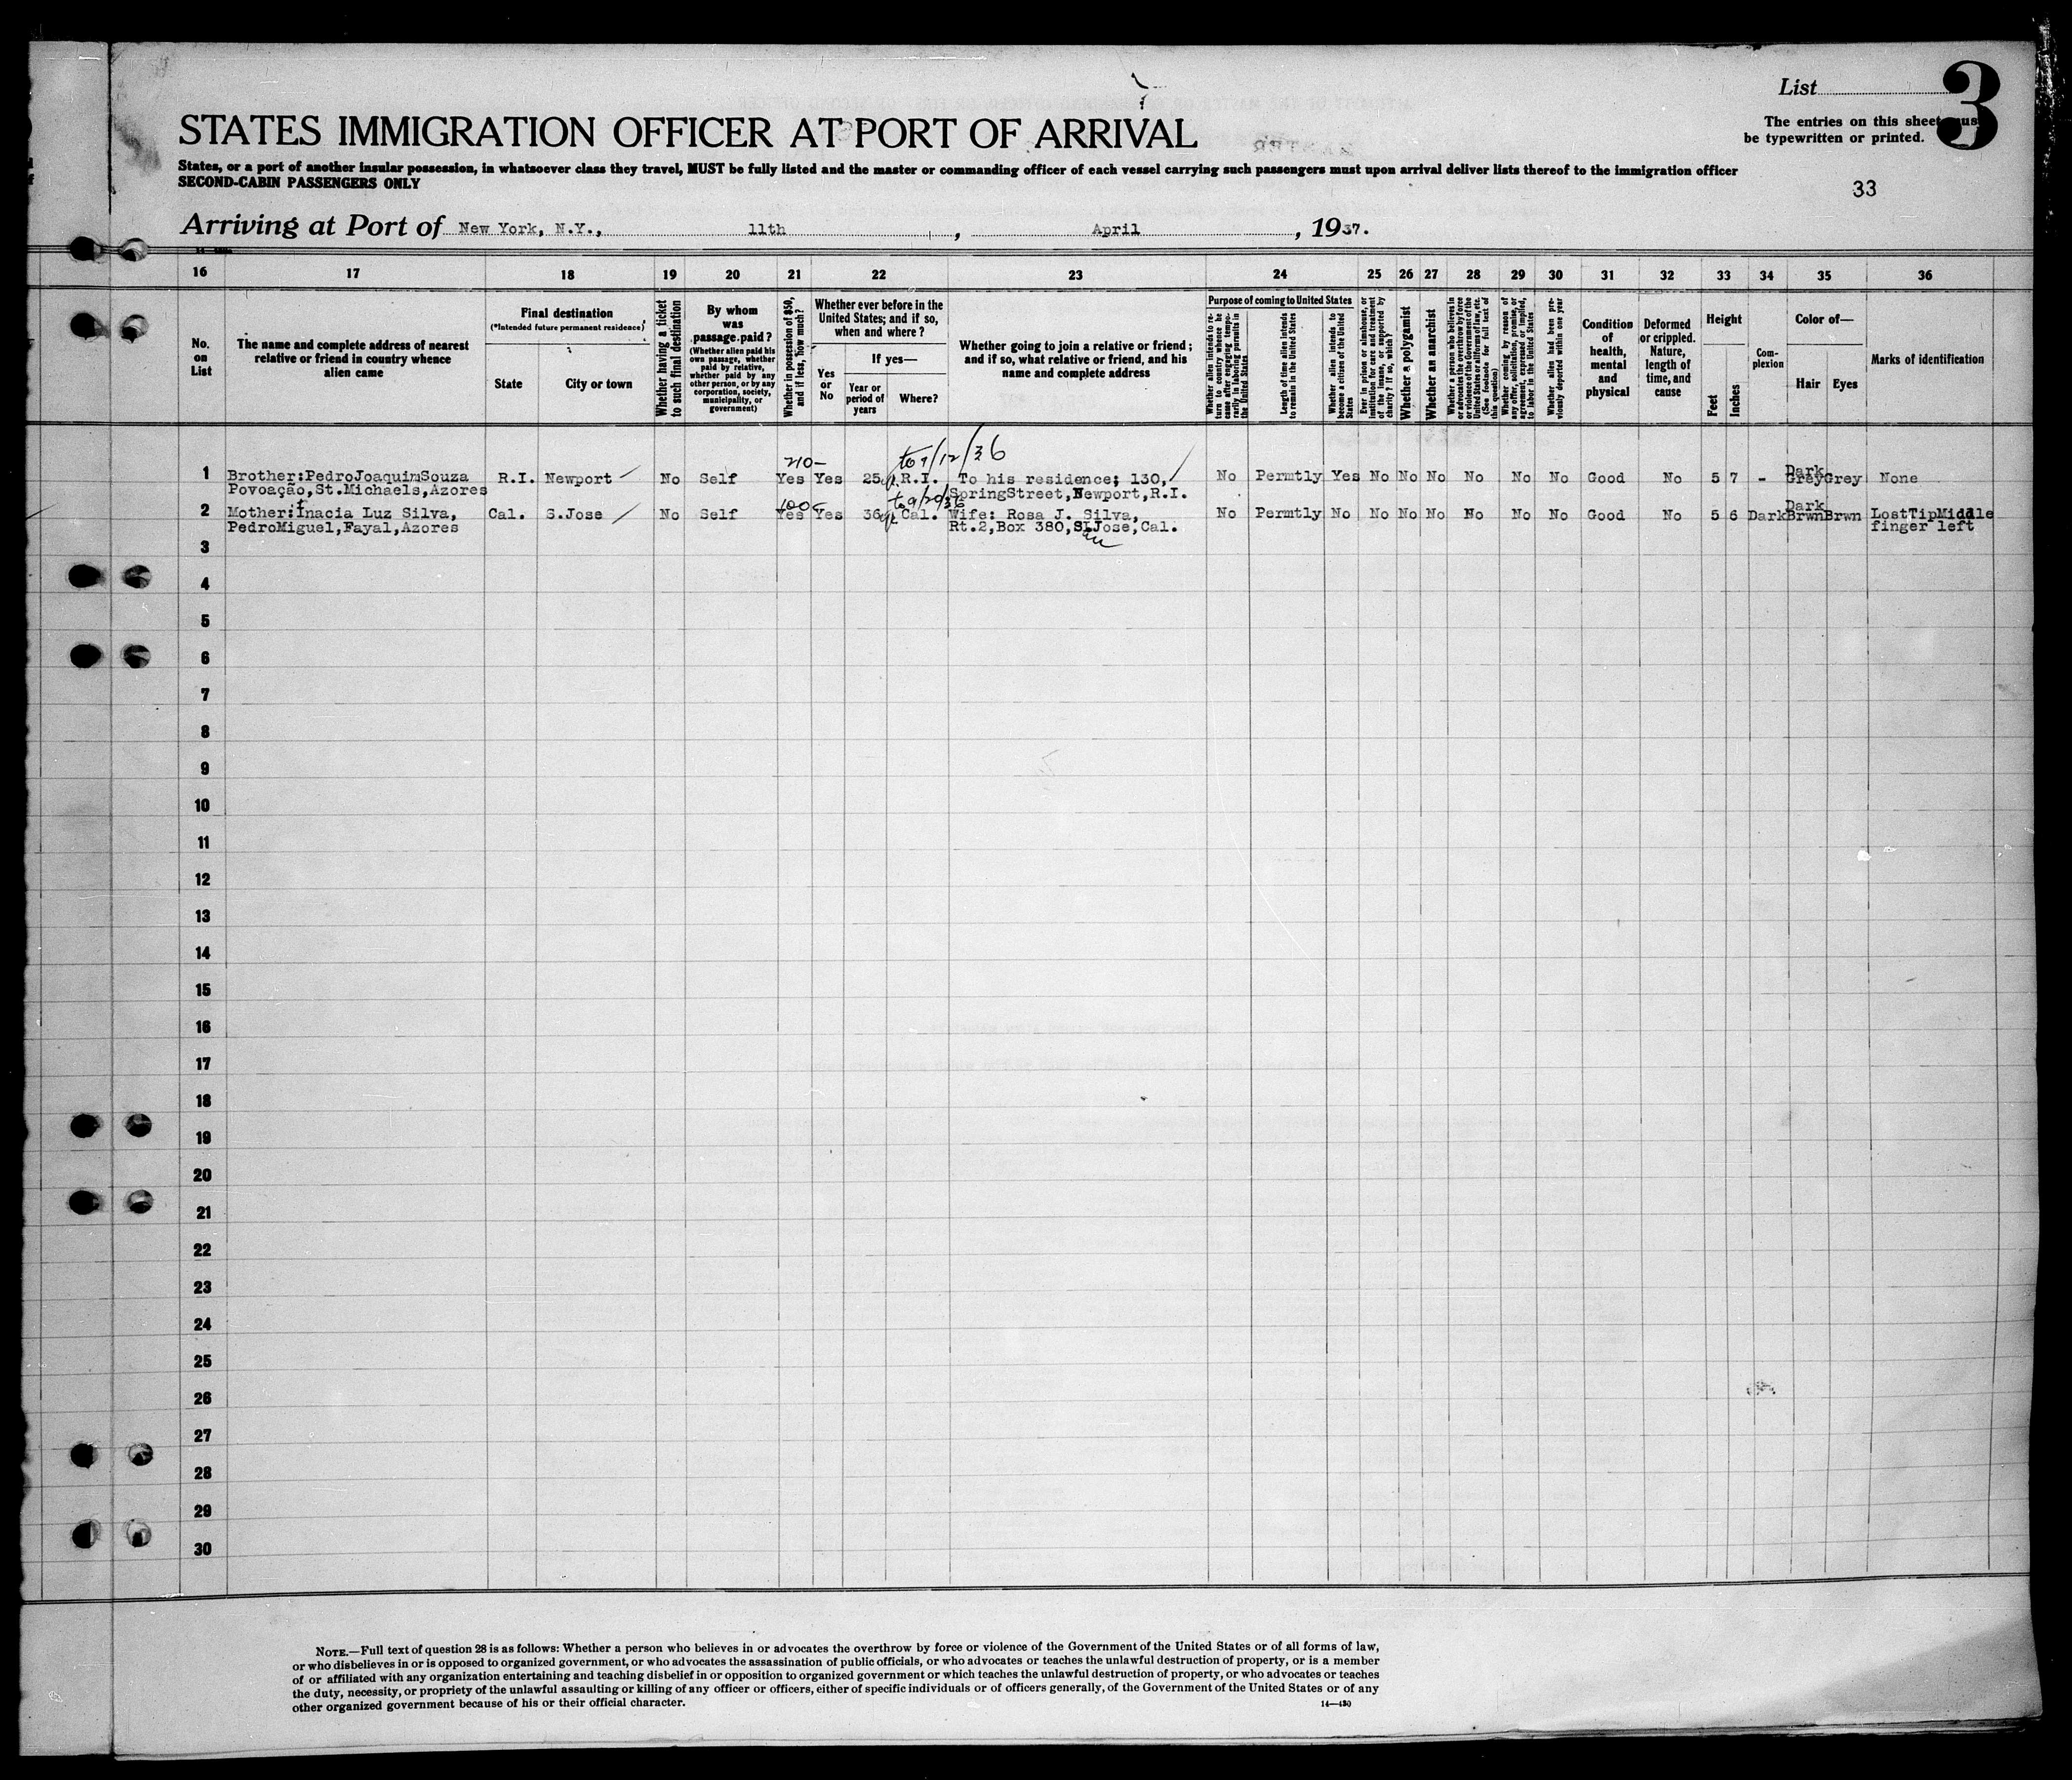 List 3
The entries on this sheet must
be typewritten or printed.
STATES IMMIGRATION OFFICER AT PORT OF ARRIVAL
States, or a port of another insular possession, in whatsoever class they travel, MUST be fully listed and the master or commanding officer of each vessel carrying such passengers must upon arrival deliver lists thereof to the immigration officer
SECOND-CABIN PASSENGERS ONLY
33
Arriving at Port of New York, N.Y., 11th, April, 1937.
16 17 18 19 20 21 22 23 24 25 26 27 28 29 30 31 32 33 34 35 36
No. on List
The name and complete address of nearest relative or friend in country whence alien came
Final destination
(*Intended future permanent residence)
State
City or town
Whether having a ticket to such final destination
By whom was passage paid?
(Whether alien paid his own passage, whether paid by relative, whether paid by any other person, or by any corporation, society, municipality, or government)
Whether in possession of $50, and if less, how much?
Whether ever before in the United States; and if so, when and where?
Yes or No
If yes—
Year or period of years
Where?
Whether going to join a relative or friend; and if so, what relative or friend, and his name and complete address
Purpose of coming to United States
Whether alien intends to return to country whence he came after engaging temporarily in laboring pursuits in the United States
Length of time alien intends to remain in the United States
Whether alien intends to become a citizen of the United States
Ever in prison or almshouse, or institution for care and treatment of the insane, or supported by charity? If so, which?
Whether a polygamist
Whether an anarchist
Whether a person who believes in or advocates the overthrow by force or violence of the Government of the United States or all forms of law, etc. (See footnote for full text of this question)
Whether coming by reason of any offer, solicitation, promise, or agreement, expressed or implied, to labor in the United States
Whether alien had been previously deported within one year
Condition of health, mental and physical
Deformed or crippled. Nature, length of time, and cause
Height
Feet
Inches
Complexion
Color of—
Hair
Eyes
Marks of identification
210- to 9/12/36 Dark
1 Brother:PedroJoaquimSouza R.I. Newport No Self Yes Yes 25 R.I. To his residence; 130, No Permtly Yes No No No No No No Good No 5 7 - Grey Grey None
Povoação,St.Michaels,Azores SpringStreet,Newport,R.I.
100- to 9/20/36 Dark
2 Mother:Inacia Luz Silva, Cal. S.Jose No Self Yes Yes 36 Cal. Wife: Rosa J. Silva, No Permtly No No No No No No No Good No 5 6 Dark Brwn Brwn LostTipMiddle
PedroMiguel,Fayal,Azores Rt.2,Box 380,S.Jose,Cal. finger left
San
3
4
5
6
7
8
9
10
11
12
13
14
15
16
17
18
19
20
21
22
23
24
25
26
27
28
29
30
NOTE.—Full text of question 28 is as follows: Whether a person who believes in or advocates the overthrow by force or violence of the Government of the United States or of all forms of law,
or who disbelieves in or is opposed to organized government, or who advocates the assassination of public officials, or who advocates or teaches the unlawful destruction of property, or is a member
of or affiliated with any organization entertaining and teaching disbelief in or opposition to organized government or which teaches the unlawful destruction of property, or who advocates or teaches
the duty, necessity, or propriety of the unlawful assaulting or killing of any officer or officers, either of specific individuals or of officers generally, of the Government of the United States or of any
other organized government because of his or their official character.
14—430